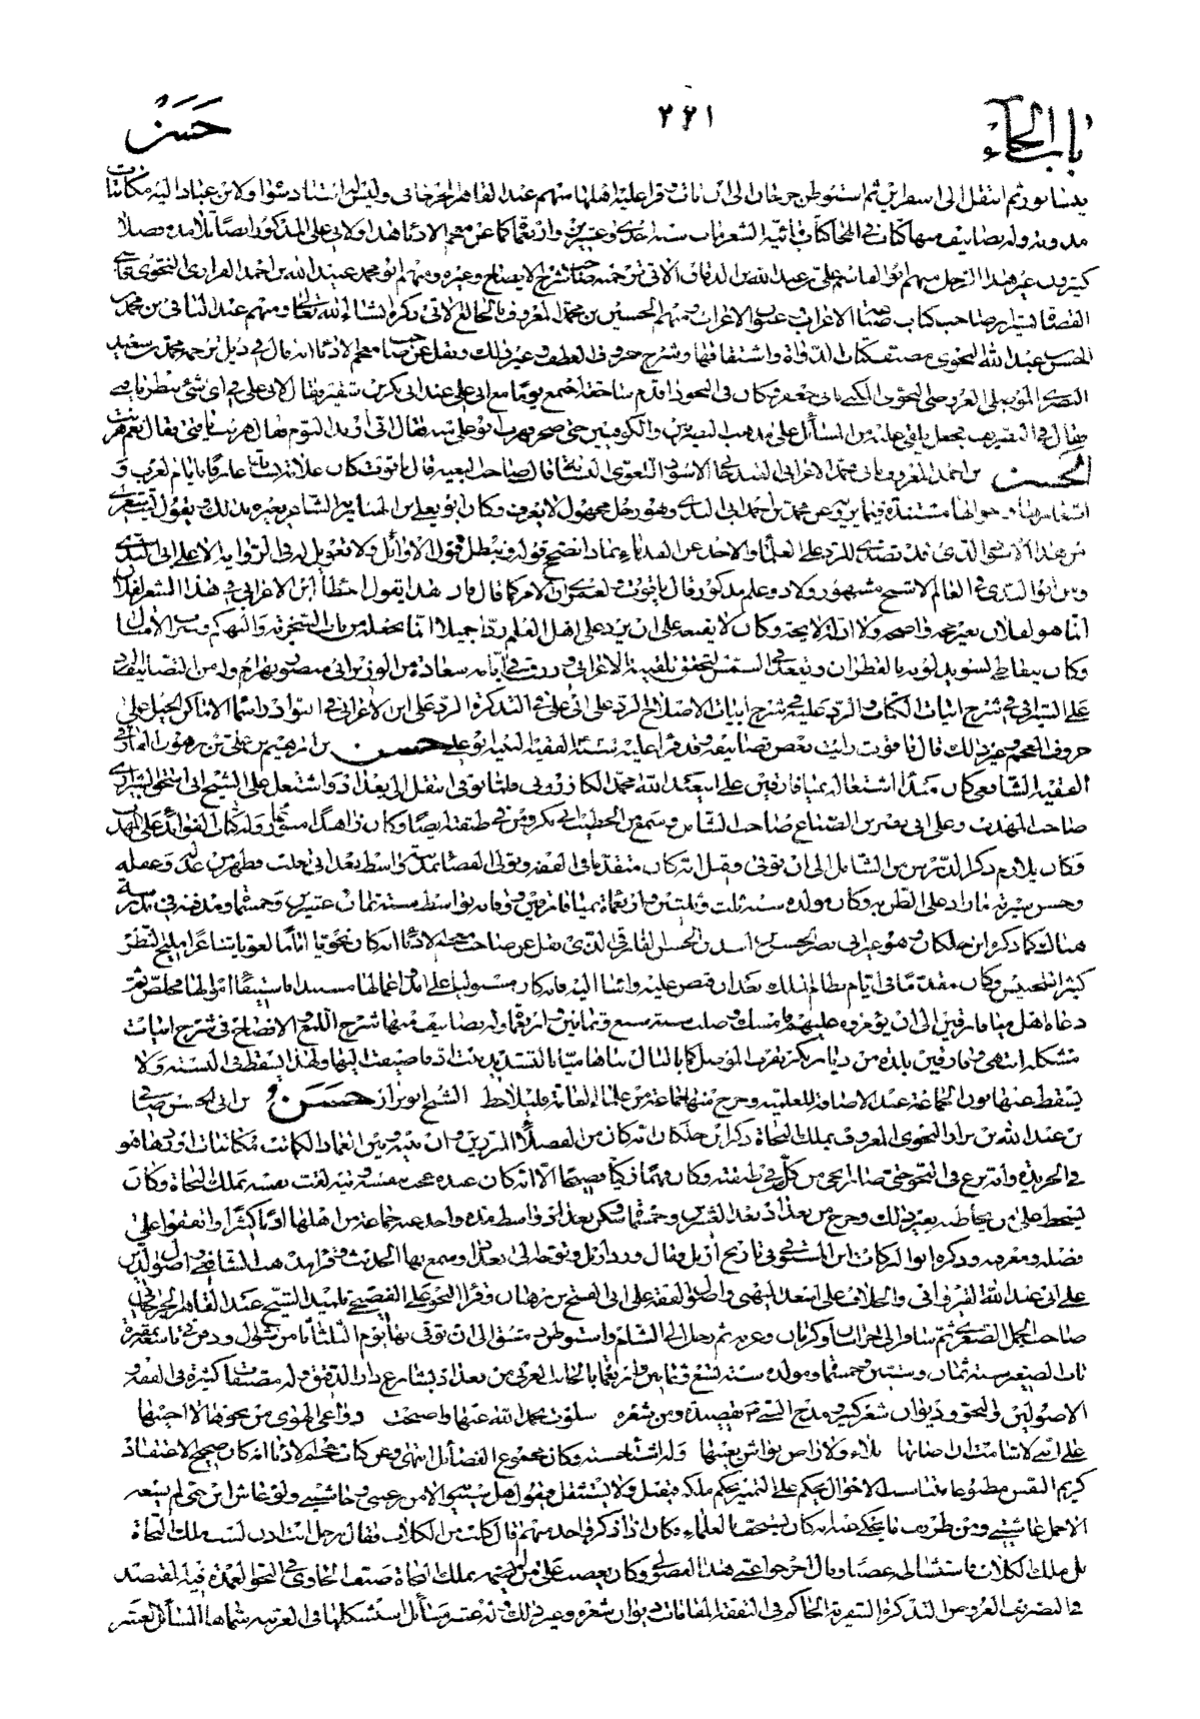 باب الحاء ٢٢١ حسن
ثم انتقل الى اسفراين ثم استوطن جرجان الى ان مات وقرأ عليه اهلها منهم عبد القاهر الجرجاني وليس له استاذ سواه ولابن عباد اليه مكاتبات
مدونة وله تصانيف منها كتاب في الشعر مات سنة احدى وعشرين واربعمائة كما عن معجم الادباء هذا ولابي علي المذكور ايضا تلامذة فضلاء
كثيرون غير هذا الرجل منهم ابو القاسم علي بن عبيد الله بن الدقاق الاتي ترجمته صاحب شرح الايضاح وغيره ومنهم ابو محمد عبد الله بن احمد الفزاري النحوي قاضي
القضاة بشيراز صاحب كتاب صناعة الاعراب عيون الاعراب ومنهم الحسين بن محمد المعروف بالخالع الاتي ذكره انشاء الله تعالى ومنهم عبد الباقي بن محمد
الحسن بن عبد الله النحوي مصنف كتاب الدواة واشتقاقها وشرح حروف العطف وغير ذلك ونقل عن صاحب معجم الادباء انه قال في ذيل ترجمة محمد بن سعيد
البصير الموصلي العروضي النحوي المكنى بابي جعفر وكان في النحو ذا قدم سابقة اجتمع يوما مع ابي علي عند ابي بكر بن شقير فقال لابي علي في اي شيء تنظر يا فتى
فقال في التصريف فجعل يلقي عليه من المسائل على مذهب البصريين والكوفيين حتى ضجر فهرب ابو علي منه فقال اني اريد النوم فقال هربت يا فتى فقال نعم هربت
الحسن بن احمد المعروف بابي محمد الاعرابي الغندجاني الاسود اللغوي النسابة قال صاحب البغية قال ياقوت كان علامة نسابة عارفا بايام العرب و
اشعارها واحوالها مستنده فيما يرويه عن محمد بن احمد ابي الندى وهو رجل مجهول لا يعرف وكان ابو يعلى بن الهبارية الشاعر يعيره بذلك ويقول ليت شعري
من هذا الاسود الذي قد تصدى للرد على العلماء والاخذ عن القدماء بماذا نصحح قوله ونبطل قول الاوائل ولا تعويل له في الرواية الا على ابي الندى
ومن ابو الندى في العالم لا شيخ مشهور ولا ذو علم مذكور قال ياقوت لعمري ان الامر كما قال فان هذا يقول اخطأ ابن الاعرابي في هذا الشعر لفلان
انما هو لفلان بغير حجة واضحة ولا ادلة لائحة وكان لا يقنعه على ان يرد على اهل العلم ردا جميلا انما يجعله من باب السخرية والتهكم وضرب الامثال
وكان يتعاطى تسويد لونه بالقطران ويقعد في الشمس لتحقق تلقيبه الاعرابي ورزق في ايامه سعادة من الوزير ابي منصور بهرام وله من التصانيف الرد
على السيرافي في شرح ابيات الكتاب والرد عليه في شرح ابيات الاصلاح الرد على ابي علي في التذكرة الرد على ابن الاعرابي في النوادر اسماء الاماكن الخيل على
حروف المعجم وغير ذلك قال ياقوت رايت بعض تصانيفه وقد قرئ عليه سنة الفقيه النبيه ابو علي حسن بن ابراهيم بن علي بن برهون الفارقي
الفقيه الشافعي كان مبدأ اشتغاله بميافارقين على ابي عبد الله محمد الكازروني فلما توفي انتقل الى بغداد واشتغل على الشيخ ابي اسحق الشيرازي
صاحب المهذب وعلى ابي نصر بن الصباغ صاحب الشامل وسمع من الخطيب ابي بكر ومن في طبقته ايضا وكان زاهدا متورعا وله كتاب الفوائد على المهذب
وكان يلازم ذكر الدرس من الشامل الى ان توفي وقيل انه كان متقدما في الفقه وتولى القضاء بمدينة واسط بعد ابي تغلب فظهر من عدله وعقله
وحسن سيرته ما زاد على الظن به وكان مولده سنة ثلث وثلثين واربعمائة بميافارقين وتوفي بواسط سنة ثمان وعشرين وخمسمائة ومدفنه في مدرسته
هناك كما ذكره ابن خلكان وهو غير ابي نصر الحسن بن اسد بن الحسن الفارقي الذي نقل عن صاحب معجم الادباء انه كان نحويا اماما لغويا شاعرا مليح النظم
كثير التجنيس وكان مقدما في ايام نظام الملك بعد ان قبض عليه واساء اليه فانه كان مستوليا على امد واعمالها مستبدا باستيفاء اموالها فخلص ثم
دعاه اهل ميافارقين الى ان يؤمروه عليهم فامسك وصلب سنة سبع وثمانين واربعمائة وله تصانيف منها شرح اللمع والافصاح في شرح ابيات
مشكلة انتهى وميافارقين بلدة من ديار بكر بقرب الموصل كما بالبال بناها ميا بالتشديد بنت اد فاضيفت اليها ولهذا يسقط في النسبة ولا
يسقط عنها نون الجماعة عند الاضافة للعلمية وخرج منها جماعة من علماء العامة فليلاحظ الشيخ ابو نزار حسن بن ابي الحسن صافي
بن عبد الله بن نزار النحوي المعروف بملك النحاة ذكر ابن خلكان انه كان من الفضلاء المبرزين وان بينه وبين العماد الكاتب مكاتبات اوردها هو
في الخريدة وانه برع في النحو حتى صار انحى من كل من في طبقته وكان فهما ذكيا فصيحا الا انه كان عنده عجب بنفسه وتيه لقب نفسه بملك النحاة وكان
يسخط على من يخاطبه بغير ذلك وخرج من بغداد بعد العشرين وخمسمائة وسكن بعد ذلك واسط مدة واخذ عنه جماعة من اهلها ادبا كثيرا واتفقوا على
فضله ومعرفته وذكره ابو البركات ابن المستوفي في تاريخ اربل فقال ورد اربل وتوجه الى بغداد وسمع بها الحديث وقرأ مذهب الشافعي واصول الدين
على ابي عبد الله القيرواني والخلاف على اسعد الميهني واصول الفقه على ابي الفتح بن برهان وقرأ النحو على الفصيحي تلميذ الشيخ عبد القاهر الجرجاني
صاحب الجمل الصغرى ثم سافر الى خراسان وكرمان وغزنة ثم رحل الى الشام واستوطن دمشق الى ان توفي بها يوم الثلثاء ثامن شوال ودفن في تاسعه بمقبرة
باب الصغير سنة ثمان وستين وخمسمائة ومولده سنة تسع وثمانين واربعمائة بالجانب الغربي من بغداد بشارع دار الدقيق وله مصنفات كثيرة في الفقه و
الاصولين والنحو وديوان شعر كبير ومدح النبي ص بقصيدة ومن شعره سلوت بحمد الله عنها واصبحت دواعي الهوى من نحوها لا اجيبها
على انني لا شامت ان اصابها بلاء ولا راض بواش يعيبها وله اشياء حسنة وكان مجموع الفضائل انتهى وعن كتاب معجم الادباء انه كان صحيح الاعتقاد
كريم النفس مطبوعا متناسب الاحوال يحكم على اهل التمييز بحكم ملكه فيقبل ولا يستثقل فيقول هل سيبويه الا من رعيتي وحاشيتي ولو عاش ابن جني لم يسعه
الا حمل غاشيتي ومن طريف ما يحكى عنه انه كان يستخف بالعلماء فكان اذا ذكر واحد منهم قال كلب من الكلاب فقال رجل انت اذن لست ملك النحاة
بل ملك الكلاب فاستشاط غضبا وقال اخرجوا عني هذا الفضولي وكان يغضب على من لم يسمه بملك النحاة صنف الحاوي في النحو العمدة فيه المقتصد
في التصريف العروض التذكرة السفرية الحاكم في الفقه المقامات ديوان شعره وغير ذلك وله عشر مسائل استشكلها في العربية سماها المسائل العشر